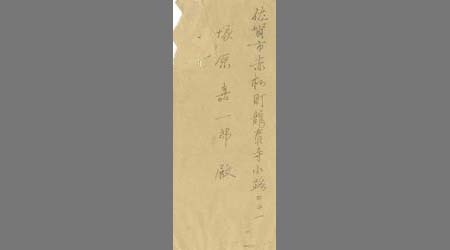 佐賀市赤松町龍泰寺小路
塚原嘉一郎殿